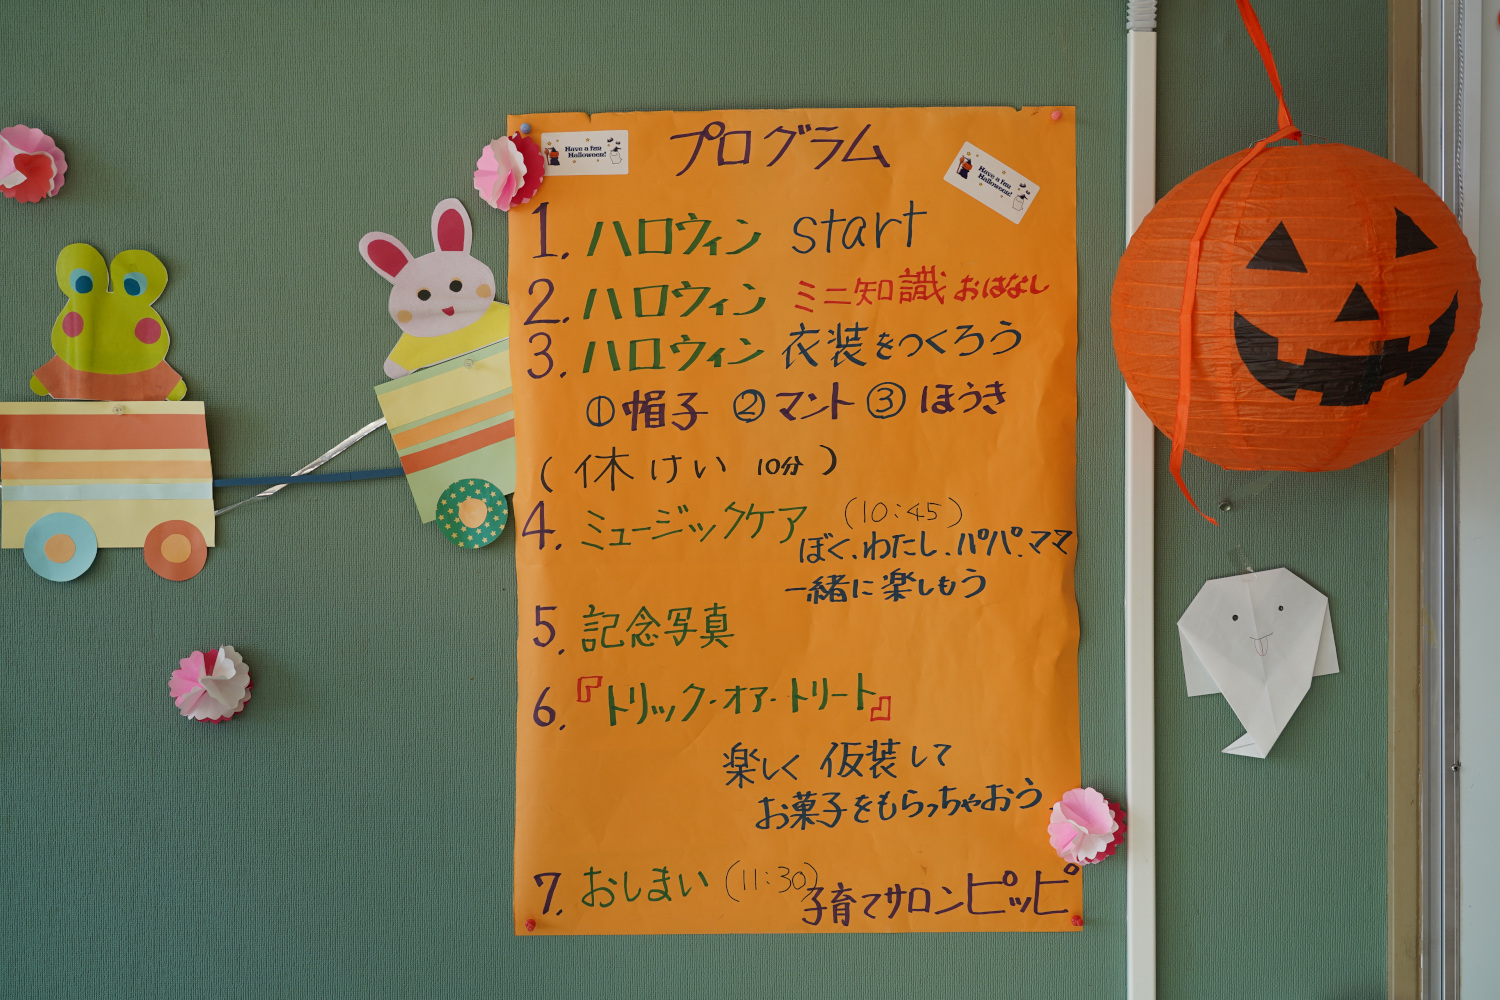 プログラム
Have a fun
Halloween!
Have a fun
Halloween!
1. ハロウィン start
2. ハロウィン ミニ知識 おはなし
3. ハロウィン 衣装をつくろう
① 帽子 ② マント ③ ほうき
( 休けい 10分 )
4. ミュージックケア (10:45)
ぼく、わたし、パパ、ママ
一緒に楽しもう
5. 記念写真
6. 『トリック・オア・トリート』
楽しく 仮装して
お菓子をもらっちゃおう
7. おしまい (11:30)
子育てサロンピッピ